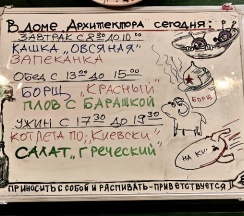 В ДОМЕ АРХИТЕКТОРА СЕГОДНЯ:
ЗАВТРАК С 8 30 ДО 10 00
КАШКА „ОВСЯНАЯ"
ЗАПЕКАНКА
ОБЕД С 13 00 ДО 15 00
БОРЩ „КРАСНЫЙ"
ПЛОВ С БАРАШКОЙ
БОРЩ
УЖИН С 17 30 ДО 19 30
КОТЛЕТА ПО „КИЕВСКИ"
САЛАТ „ГРЕЧЕСКИЙ"
НА КИ
ПРИНОСИТЬ С СОБОЙ И РАСПИВАТЬ - ПРИВЕТСТВУЕТСЯ